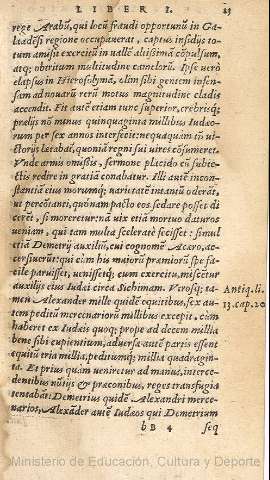 LIBER I. 23
rege Arabũ, qui locũ fraudi opportunũ in Ga-
laadesi regione occupauerat, captus insidijs to-
tum amisit exercitũ in uallẽ altißimã cõpulsum,
atq; obtritum multitudine camelorũ. Ipse uerò
elapsus in Hierosolymã, olim sibi gentem infen-
sam ad nouarũ rerũ motus magnitudine cladis
accendit. Fit autẽ etiam tunc superior, crebrisq́;
prelijs nõ minus quinquaginta millibus Iudæo-
rum per sex annos interfecit: nequaquam tñ ui-
ctorijs lætabat, quoniã regni sui uires cõsumeret.
Vnde armis omißis, sermone placido cũ subie-
ctis redire in gratiã conabatur. Illi autẽ incon-
stantiã eius morumq́; uarietatẽ intantũ oderãt,
ut percõtanti, quónam pacto eos sedare posset di
cerẽt, si moreretur: nã uix etiã mortuo daturos
ueniam, qui tam multa sceleratè fecisset: simul
etiã Demetrij auxiliũ, cui cognomẽ Acæro, ac-
cersiuerũt: qui cùm his maiorũ præmiorũ spe fa-
cilè paruisset, uenissetq́; cum exercitu, miscẽtur
auxilijs eius Iudæi circa Sichimam. Vtrosq; ta-
men Alexander mille quidẽ equitibus, sex au-
tem peditũ mercenariorũ millibus excepit, cùm
haberet ex Iudæis quoq; prope ad decem millia
bene sibi cupientium, aduersæ autẽ partis essent
equitũ tria millia, peditumq́; millia quadragin-
ta. Et prius quàm ueniretur ad manus, interce-
dentibus nũtijs & præconibus, reges transfugia
tentabãt: Demetrius quidẽ Alexandri merce-
narios, Alexãder autẽ Iudæos qui Demetrium
b B 4 seq
Antiq. li.
13. cap. 20
Ministerio de Educación, Cultura y Deporte